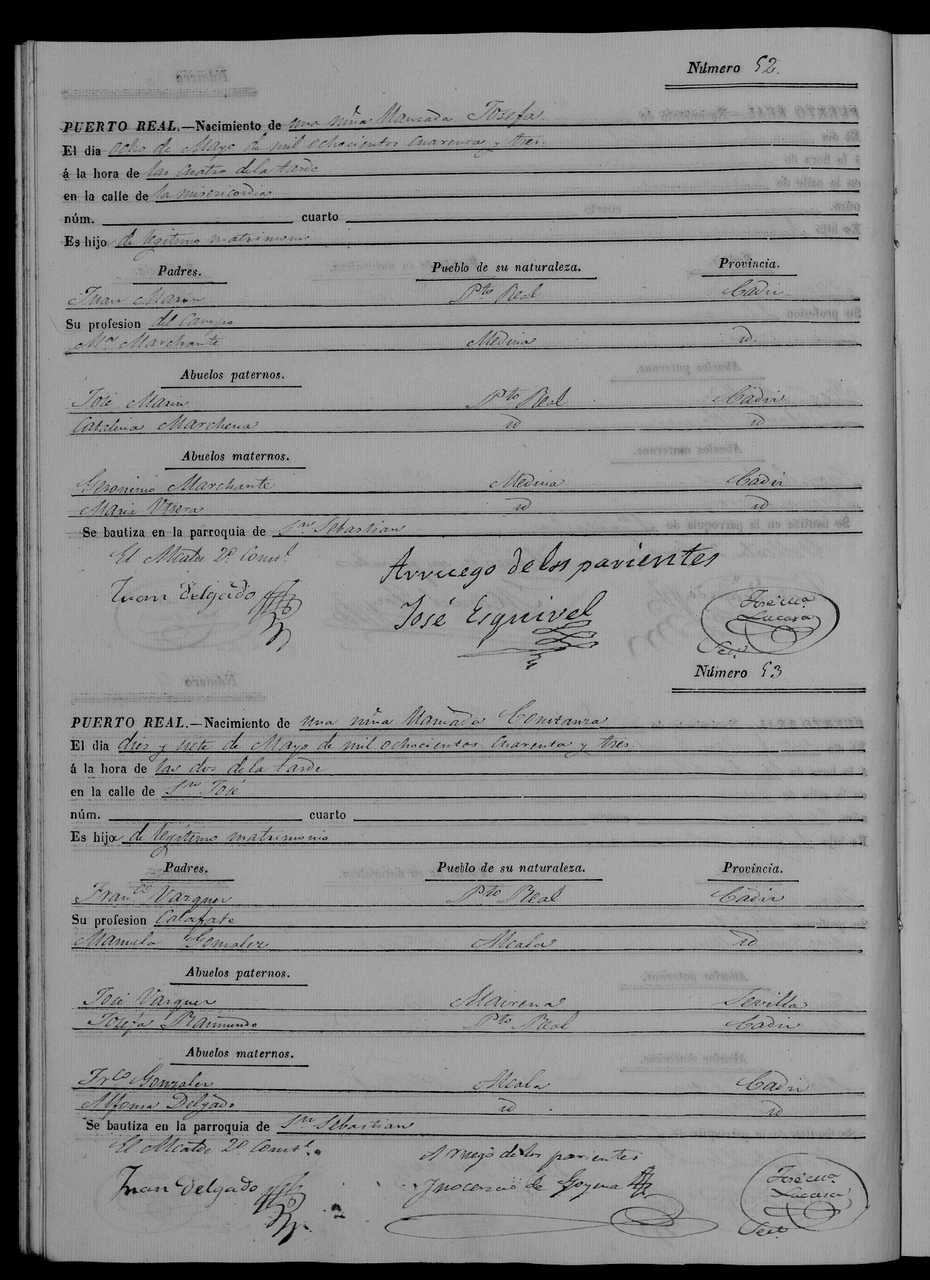 Número 52.
PUERTO REAL.—Nacimiento de una niña llamada Josefa
El dia ocho de Mayo de mil ochocientos cuarenta y tres
á la hora de las cuatro de la tarde
en la calle de la misericordia
núm. cuarto
Es hijo de legitimo matrimonio
Padres. Pueblo de su naturaleza. Provincia.
Juan Marin Pto Real Cadiz
Su profesion del Campo
Ma Marchante Medina id.
Abuelos paternos.
José Marin Pto Real Cadiz
Catalina Marchena id id
Abuelos maternos.
Geronimo Marchante Medina Cadiz
Maria id id
Se bautiza en la parroquia de Sn Sebastian
El Alcalde 2º Consl.
Arruego de los parientes
Juan Delgado
José Esquivel
José Ma
Lucasa
Sec.
Número 53
PUERTO REAL.—Nacimiento de una niña llamada Constanza
El dia diez y siete de Mayo de mil ochocientos cuarenta y tres
á la hora de las dos de la tarde
en la calle de Sn José
núm. cuarto
Es hija de legitimo matrimonio
Padres. Pueblo de su naturaleza. Provincia.
Franco Vazquez Pto Real Cadiz
Su profesion Calafate
Manuela Gonzalez Alcala id
Abuelos paternos.
José Vazquez Mairena Sevilla
Josefa Raimundo Pto Real Cadiz
Abuelos maternos.
Frco Gonzalez Alcala Cadiz
Alfonsa Delgado id id
Se bautiza en la parroquia de Sn Sebastian
El Alcalde 2º Consl.
A ruego de los parientes
Juan Delgado
Inocencio de Goyena
José Ma
Lucasa
Sec.